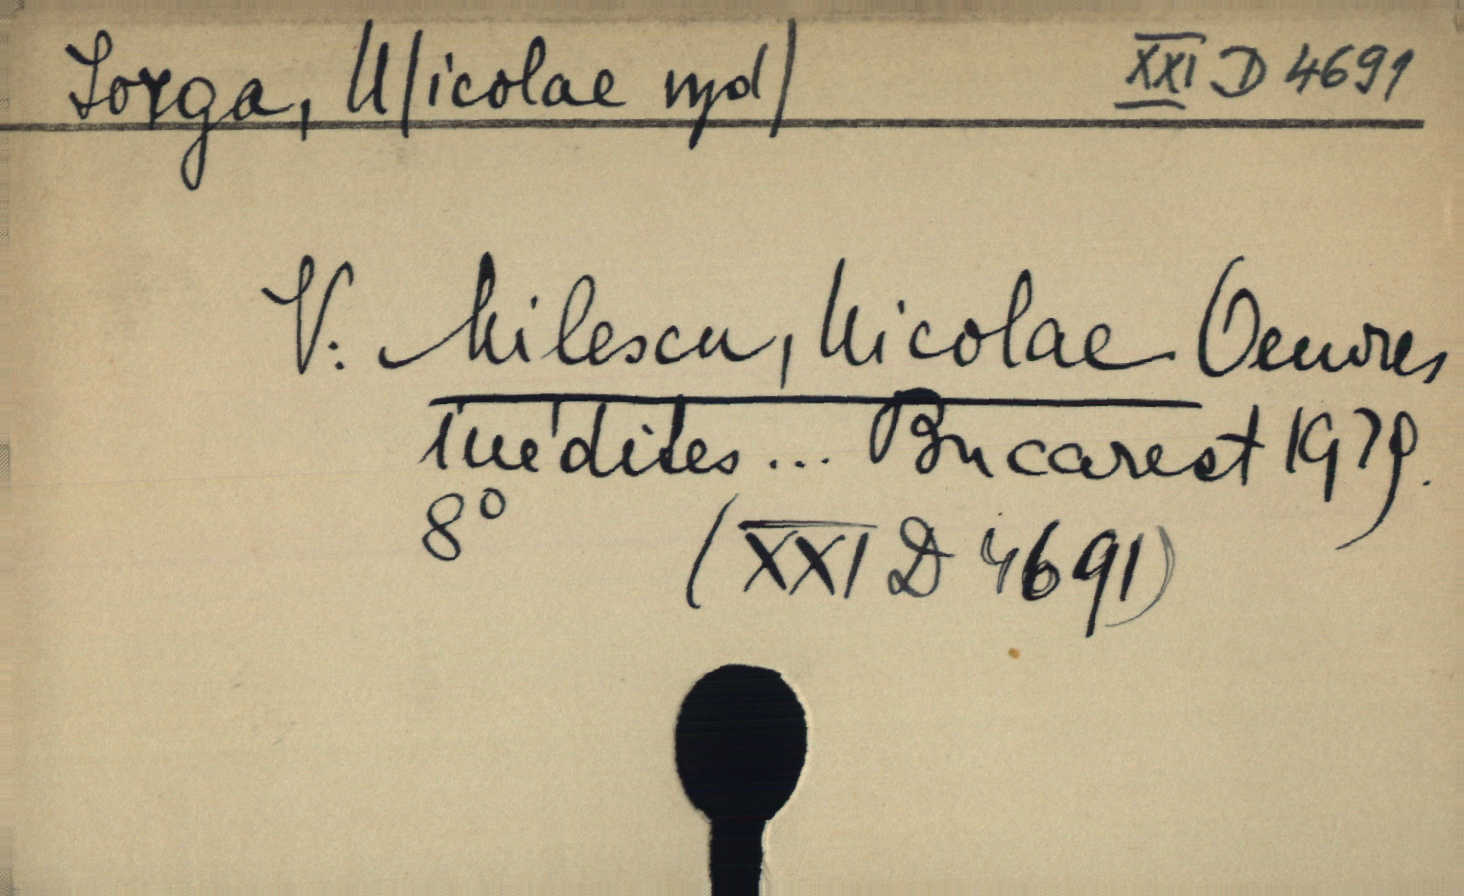 Iorga, N/icolae wyd/ XXI D 4691
V. Milescu, Nicolae Oeuvres
inédites... Bucarest 1979.
8° (XXI D 4691)